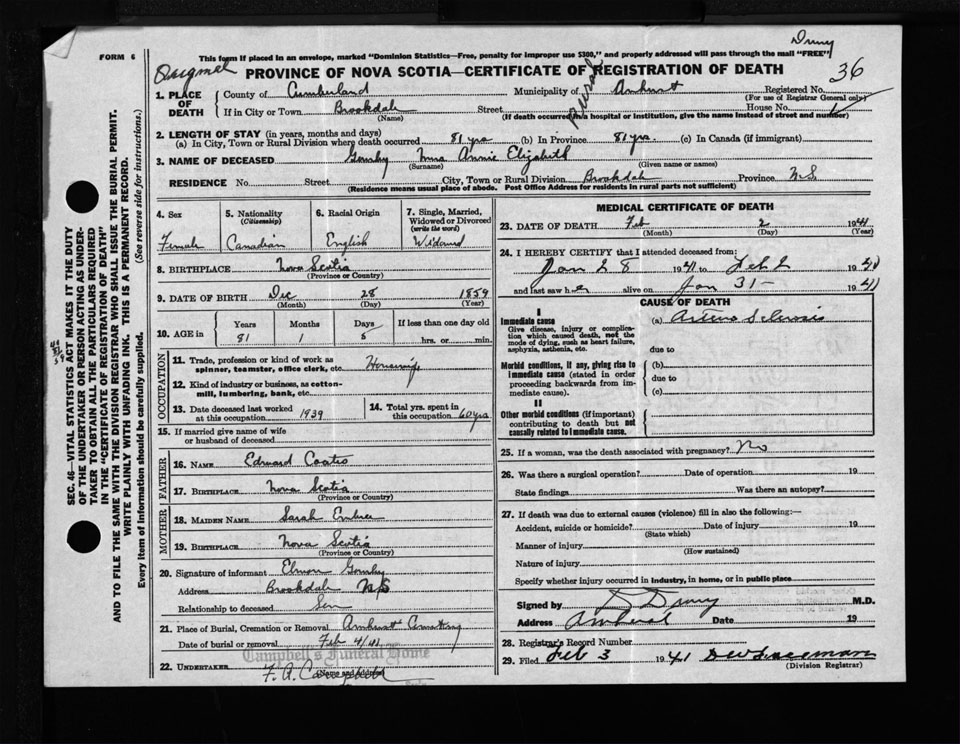 Drury
FORM 6
This form if placed in an envelope, marked "Dominion Statistics—Free, penalty for improper use $300," and properly addressed will pass through the mail "FREE"
PROVINCE OF NOVA SCOTIA—CERTIFICATE OF REGISTRATION OF DEATH
36
1. PLACE OF DEATH
County of Cumberland Municipality of Amherst Registered No.
(For use of Registrar General only)
If in City or Town Brookdale Street House No.
(Name) (If death occurred in a hospital or institution, give the name instead of street and number)
Rural
2. LENGTH OF STAY (in years, months and days)
(a) In City, Town or Rural Division where death occurred 81 yrs (b) In Province 81 yrs. (c) In Canada (if immigrant)
3. NAME OF DECEASED Annie Elizabeth
(Surname) (Given name or names)
RESIDENCE No. Street City, Town or Rural Division Brookdale Province N.S
(Residence means usual place of abode. Post Office Address for residents in rural parts not sufficient)
4. Sex
Female
5. Nationality
(Citizenship)
Canadian
6. Racial Origin
English
7. Single, Married, Widowed or Divorced
(write the word)
Widowed
8. BIRTHPLACE Nova Scotia
(Province or Country)
9. DATE OF BIRTH Dec 28 1859
(Month) (Day) (Year)
10. AGE in
Years Months Days If less than one day old
81 1 5 hrs. or min.
OCCUPATION
11. Trade, profession or kind of work as spinner, teamster, office clerk, etc. Housewife
12. Kind of industry or business, as cotton-mill, lumbering, bank, etc.
13. Date deceased last worked at this occupation 1939
14. Total yrs. spent in this occupation 60 yrs
15. If married give name of wife or husband of deceased
FATHER
16. NAME Edward Coates
17. BIRTHPLACE Nova Scotia
(Province or Country)
MOTHER
18. MAIDEN NAME Sarah Embree
19. BIRTHPLACE Nova Scotia
(Province or Country)
20. Signature of informant
Address Brookdale N.S
Relationship to deceased Son
21. Place of Burial, Cremation or Removal Amherst
Date of burial or removal Feb 4/41
Campbell's Funeral Home
22. UNDERTAKER F. A. Campbell
MEDICAL CERTIFICATE OF DEATH
23. DATE OF DEATH Feb 2 1941
(Month) (Day) (Year)
24. I HEREBY CERTIFY that I attended deceased from:
Jan 28 1941 to Feb 2 1941
and last saw her alive on Jan 31 - 1941
CAUSE OF DEATH
I
Immediate cause
Give disease, injury or complication which caused death, not the mode of dying, such as heart failure, asphyxia, asthenia, etc.
(a) Arterio Sclerosis
due to
Morbid conditions, if any, giving rise to immediate cause (stated in order proceeding backwards from immediate cause).
(b)
due to
(c)
II
Other morbid conditions (if important) contributing to death but not causally related to immediate cause.
25. If a woman, was the death associated with pregnancy? No
26. Was there a surgical operation? Date of operation 19
State findings Was there an autopsy?
27. If death was due to external causes (violence) fill in also the following:—
Accident, suicide or homicide? Date of injury 19
(State which)
Manner of injury
(How sustained)
Nature of injury
Specify whether injury occurred in industry, in home, or in public place
Signed by D Drury M.D.
Address Amherst Date 19
28. Registrar's Record Number
29. Filed Feb 3 1941
(Division Registrar)
SEC. 46—VITAL STATISTICS ACT MAKES IT THE DUTY
OF THE UNDERTAKER OR PERSON ACTING AS UNDER-
TAKER TO OBTAIN ALL THE PARTICULARS REQUIRED
IN THE "CERTIFICATE OF REGISTRATION OF DEATH"
AND TO FILE THE SAME WITH THE DIVISION REGISTRAR WHO SHALL ISSUE THE BURIAL PERMIT.
WRITE PLAINLY WITH UNFADING INK. THIS IS A PERMANENT RECORD.
Every item of information should be carefully supplied. (See reverse side for instructions.)